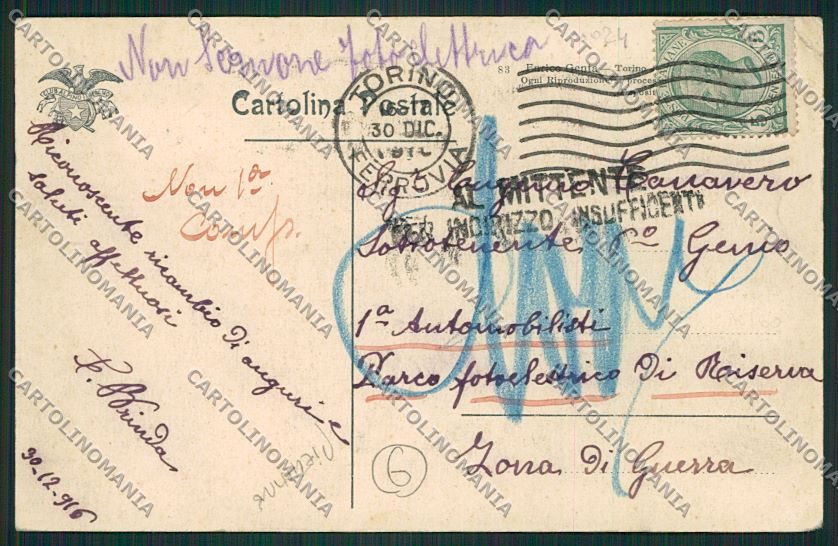 Non Sezione fotoelettrica
83 Enrico Genta Torino
Ogni Riproduzione
Cartolina Postale
TORINO
30 DIC.
FERROVIA
AL MITTENTE
PER INDIRIZZO INSUFFICENTE
Non 1ª
Comp.
Riconoscente ricambio di auguri e
saluti affettuosi
F. Brinda
30-12-916
Sig Eugenio Canavero
Sottotenente 6º Genio
1ª Automobilisti
Parco fotoelettrico Di Riserva
Zona Di Guerra
6
CARTOLINOMANIA